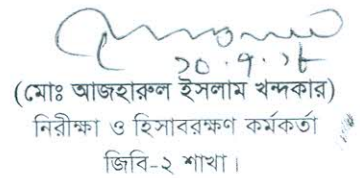 ২০.৭.২৮
(মোঃ আজহারুল ইসলাম খন্দকার)
নিরীক্ষা ও হিসাবরক্ষণ কর্মকর্তা
জিবি-২ শাখা।